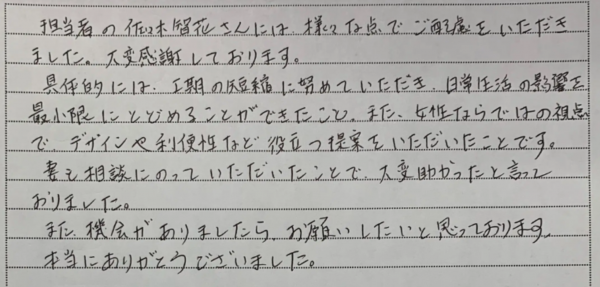 担当者の佐々木智花さんには、様々な点でご配慮をいただき
ました。大変感謝しております。
具体的には、工期の短縮に努めていただき、日常生活の影響を
最小限にとどめることができたこと、また、女性ならではの視点
で、デザインや利便性など役立つ提案をいただいたことです。
妻も相談にのっていただいたことで、大変助かったと言って
おりました。
また、機会がありましたら、お願いしたいと思っております。
本当にありがとうございました。